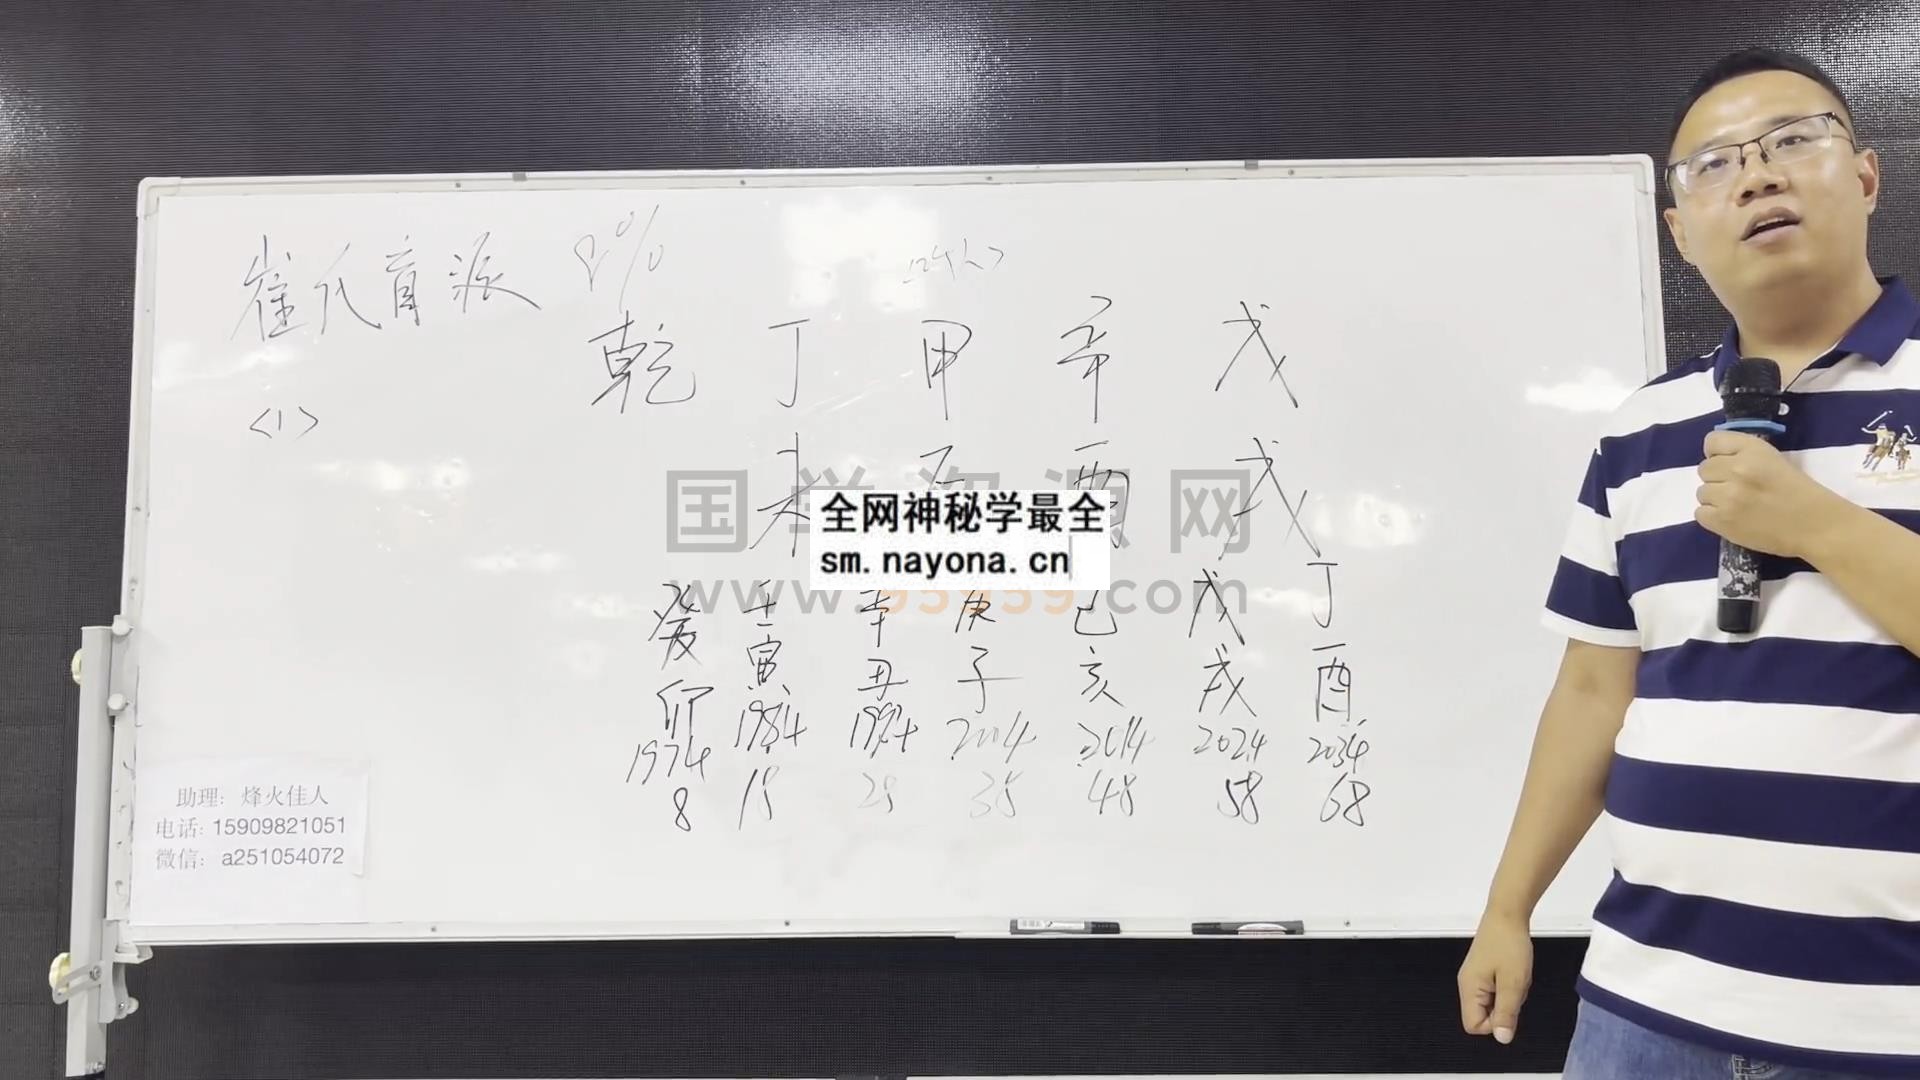 崔氏盲派
乾 丁 甲 辛 戊
<1>
未 酉 戌
国学资源网
全网神秘学最全
sm.nayona.cn
www.95959.com
癸 壬 辛 庚 己 戊 丁
卯 寅 丑 子 亥 戌 酉
1974 1984 1994 2004 2014 2024 2034
8 18 28 38 48 58 68
助理：烽火佳人
电话: 15909821051
微信： a251054072